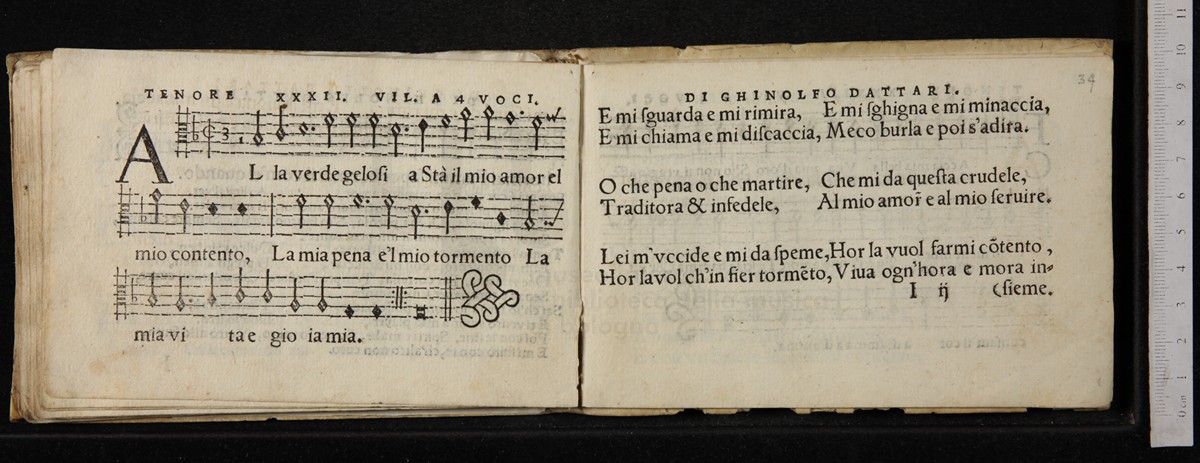 TENORE XXXII. VIL. A 4 VOCI.
AL la verde gelosi a Stà il mio amor el
mio contento, La mia pena e'l mio tormento La
mia vi ta e gio ia mia.
34
DI GHINOLFO DATTARI.
E mi ſguarda e mi rimira, E mi ſghigna e mi minaccia,
E mi chiama e mi diſcaccia, Meco burla e poi s'adira.
O che pena o che martire, Che mi da queſta crudele,
Traditora & infedele, Al mio amor̃ e al mio ſeruire.
Lei m'vccide e mi da ſpeme, Hor la vuol farmi cõtento,
Hor la vol ch'in fier tormẽto, Viua ogn'hora e mora in-
I ij (ſieme.
museo
biblioteca della musica
bologna
0 cm 1 2 3 4 5 6 7 8 9 10 11